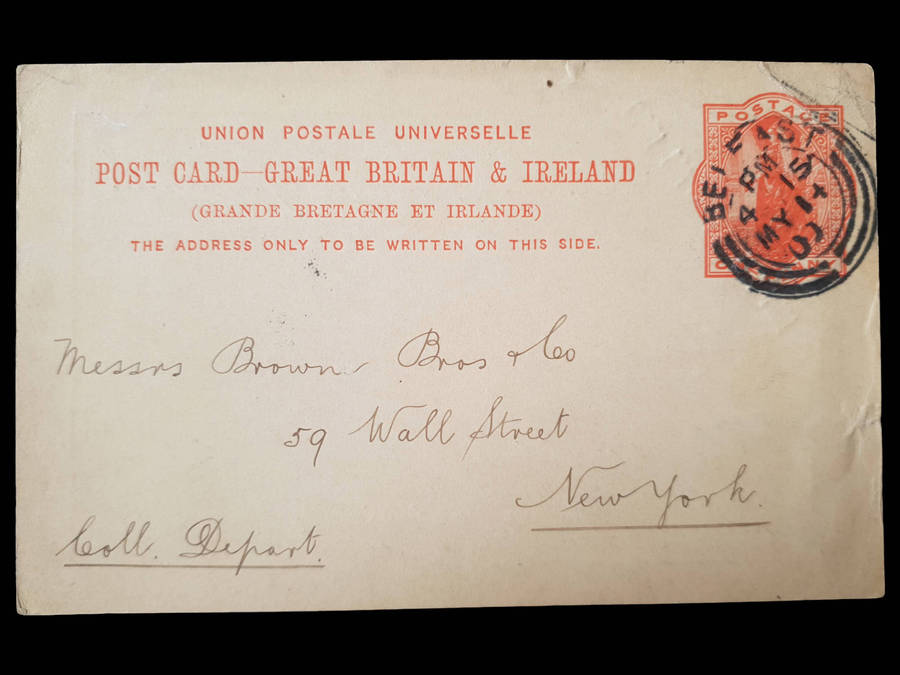 UNION POSTALE UNIVERSELLE
POST CARD—GREAT BRITAIN & IRELAND
(GRANDE BRETAGNE ET IRLANDE)
THE ADDRESS ONLY TO BE WRITTEN ON THIS SIDE.
POSTAGE
BELFAST
4 15 PM
MY 14
ONE PENNY
Messrs Brown Bros & Co
59 Wall Street
New York.
Coll. Depart.